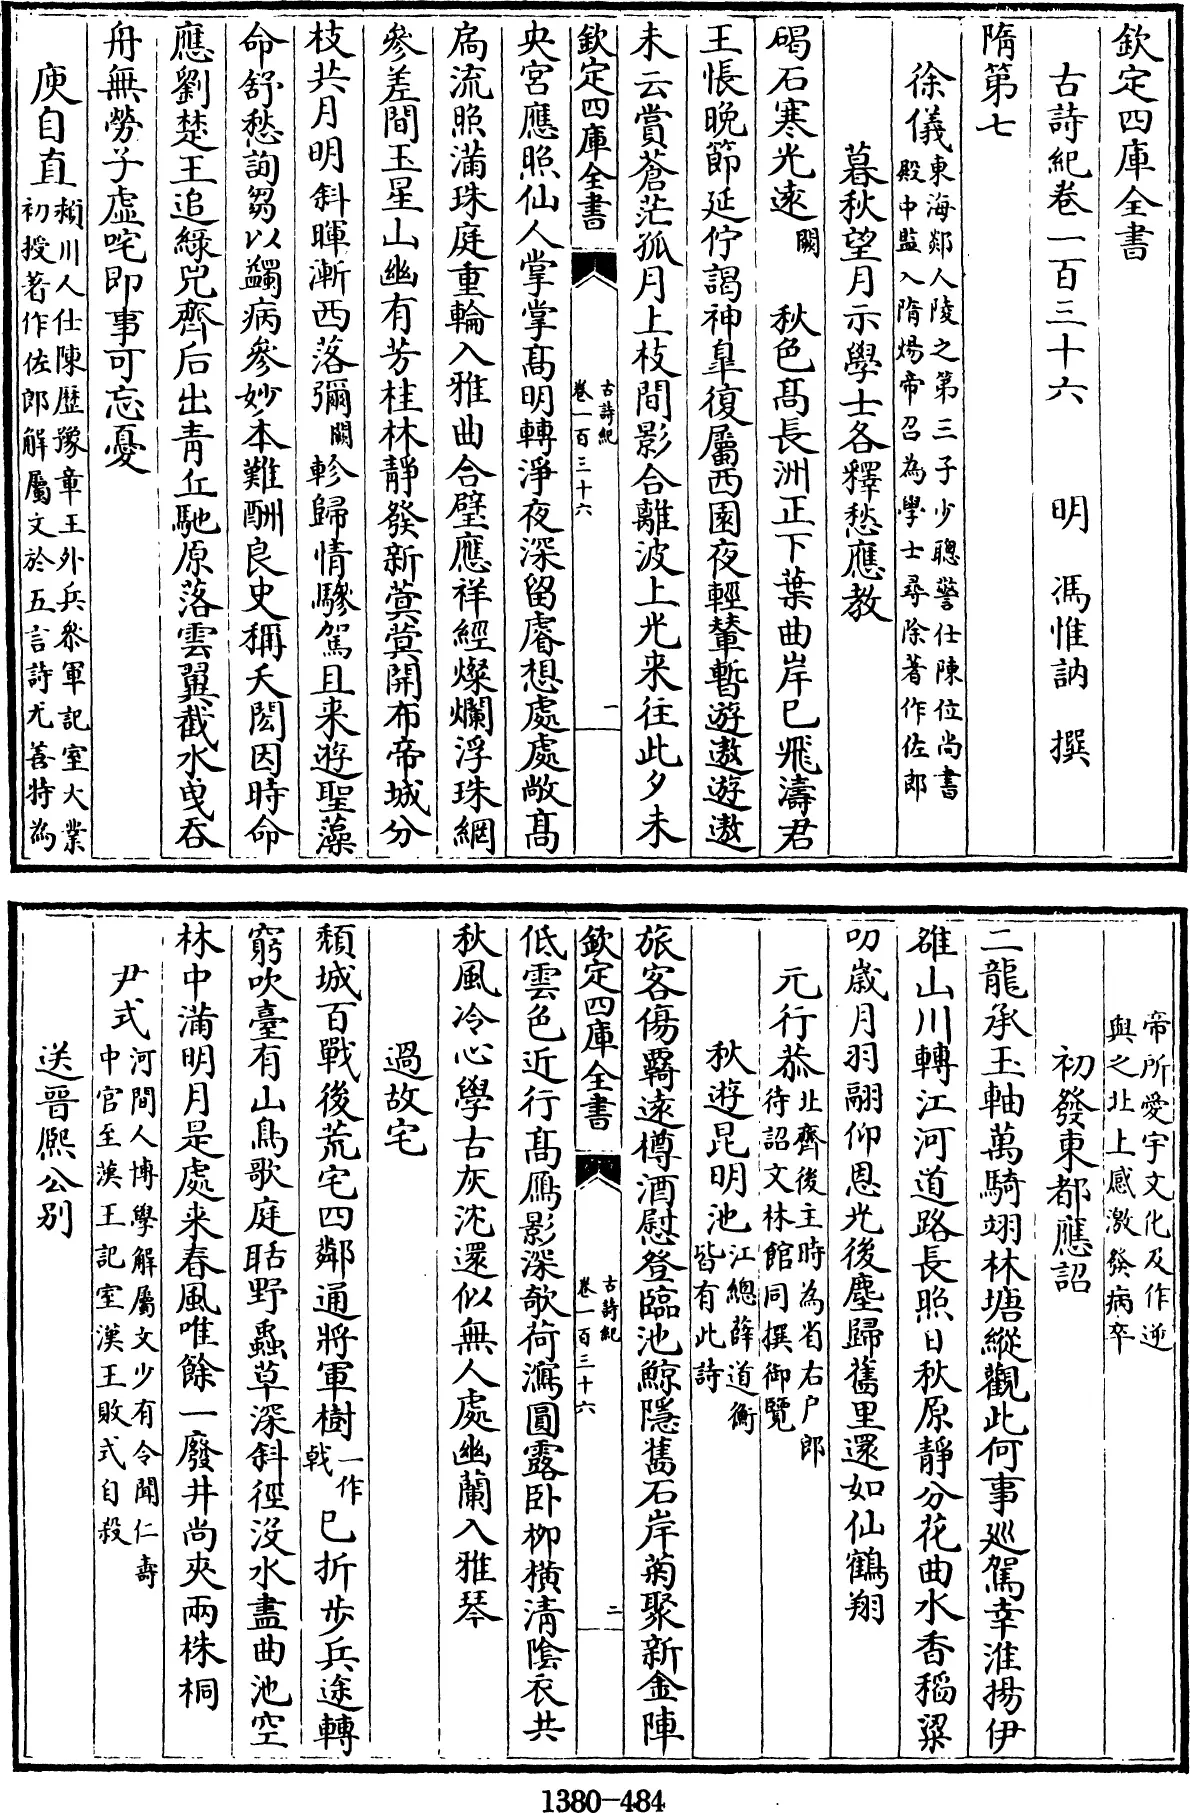 欽定四庫全書
古詩紀卷一百三十六　明　馮惟訥　撰
隋第七
徐儀東海郯人陵之第三子少聰警仕陳位尚書
殿中監入隋煬帝召為學士尋除著作佐郎
暮秋望月示學士各釋愁應教
碣石寒光遠闕　秋色髙長洲正下葉曲岸已飛濤君
王悵晚節延佇謁神臯復屬西園夜輕輦暫遊遨遊遨
未云賞蒼茫孤月上枝間影合離波上光来往此夕未
欽定四庫全書
古詩紀
卷一百三十六
一
央宮應照仙人掌掌髙明轉淨夜深留睿想處處敞髙
扃流照滿珠庭重輪入雅曲合璧應祥經燦爛浮珠網
參差間玉星山幽有芳桂林靜發新蓂蓂開布帝城分
枝共月明斜暉漸西落彌闕軫歸情驂駕且来遊聖藻
命舒愁詢芻以蠲病參妙本難酬良史稱夭閼因時命
應劉楚王追綠兕齊后出青丘馳原落雲翼截水曵吞
舟無勞子虚咤即事可忘憂
庾自直潁川人仕陳歴豫章王外兵叅軍記室大業
初授著作佐郎解屬文於五言詩尤善特為
帝所愛宇文化及作逆
與之北上感激發病卒
初發東都應詔
二龍承玉軸萬騎翊林塘縱觀此何事廵駕幸淮揚伊
雒山川轉江河道路長照日秋原靜分花曲水香稻粱
叨歲月羽翮仰恩光後塵歸舊里還如仙鶴翔
元行恭北齊後主時為省右户郎
待詔文林館同撰御覽
秋遊昆明池江總薛道衡
皆有此詩
旅客傷羈遠樽酒慰登臨池鯨隱舊石岸菊聚新金陣
欽定四庫全書
古詩紀
卷一百三十六
二
低雲色近行髙鴈影深欹荷瀉圓露卧柳横清陰衣共
秋風冷心學古灰沈還似無人處幽蘭入雅琴
過故宅
頽城百戰後荒宅四鄰通將軍樹一作
戟已折歩兵途轉
窮吹臺有山鳥歌庭聒野蟲草深斜徑沒水盡曲池空
林中滿明月是處来春風唯餘一廢井尚夾兩株桐
尹式河間人博學解屬文少有令聞仁壽
中官至漢王記室漢王敗式自殺
送晉熙公别
1380-484